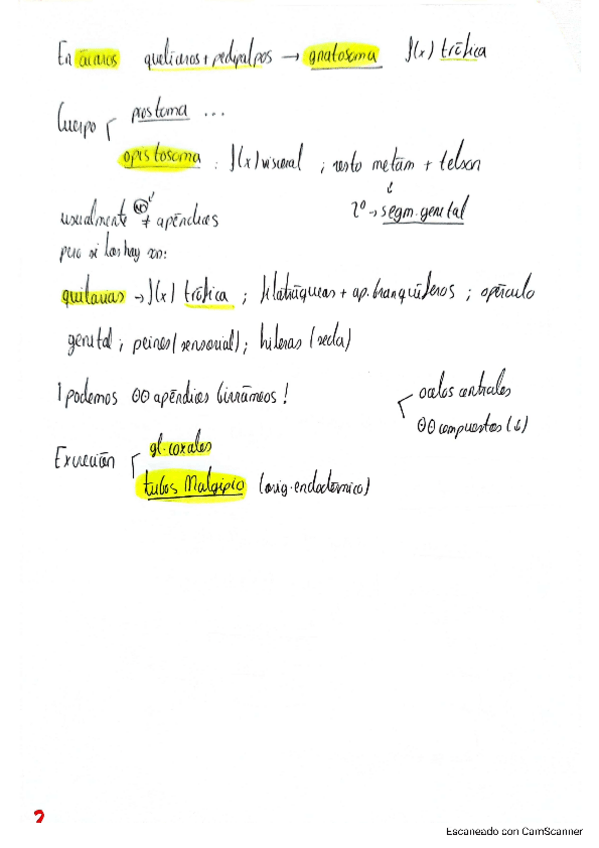 En ácaros queliceros + pedipalpos → gnatosoma f(x) trófica
Cuerpo prostoma ...
opistosoma : f(x) visceral ; resto metám + telson
usualmente NO ∃ apéndices 2º → segm. genital
pero si los hay son:
→ f(x) trófica ; filotráqueas + ap. branquíferos ; opérculo
genital ; peines (sensorial) ; hileras (seda)
¡ podemos ʘʘ apéndices birrámeos !
ocelos centrales
ʘʘ compuestos
Excreción gl. coxales
tubos Malpigio (orig. endodérmico)
2
Escaneado con CamScanner